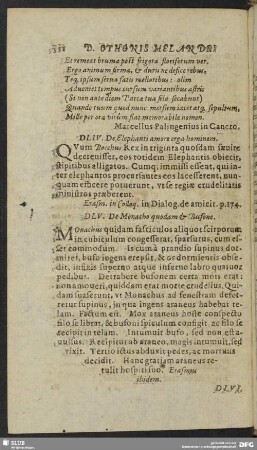 D. OTHONIS MELANDRI
Et remeat bruma post frigora floriferum ver.
Ergo animum firma, & duris ne desice rebus,
Teq. ipsum serva fatis melioribus: olim
Adveniet tempus cursum variantibus astris
(Si non ante diem Parca tua fila secabunt)
Quando tuum quod nunc morsem iacet atq. sepultum,
Mille per ora virûm fiat memorabile nomen.
Marcellus Palingenius in Cancro.
DLIV. De Elephanti amore erga hominem.
QVum Bocchus Rex in triginta quosdam sævire
decrevisset, eos totidem Elephantis obiecit,
stipitibus alligatos. Cumq; immissi essent, qui in-
ter elephantos procursantes eos lacesserent, nun-
quam efficere potuerunt, vt se regiæ crudelitatis
ministros præberent.
Erasm. in Colloq. in Dialog. de amicit. p. 174.
DLV. De Monacho quodam & Bufone.
MOnachus quidam fasciculos aliquot scirporum
in cubiculum congesserat, sparsurus, cum es-
set commodum. Is cum à prandio supinus dor-
miret, bufo irrepsit, & os dormientis obse-
dit, infixis superno atque inferno labro quatuor
pedibus. Detrahere bufonem certa mors erat:
non amoveri, quiddam erat morte crudelius. Qui-
dam suaserunt, vt Monachus ad fenestram defer-
retur supinus, in qua ingens araneus habebat te-
lam. Factum est. Mox araneus hoste conspecto
filo se librat, & bufoni spiculum configit, ac filo se
decipit in telam. Intumuit bufo, sed non exta-
tus. Recipitur ab araneo, magis intumuit, sed
vixit. Tertio ictus abduxit pedes, ac mortuus
decidit. Hanc gratiam araneus re-
tulit hospiti suo. Erasmus
ibidem.
DLVI.
SLUB